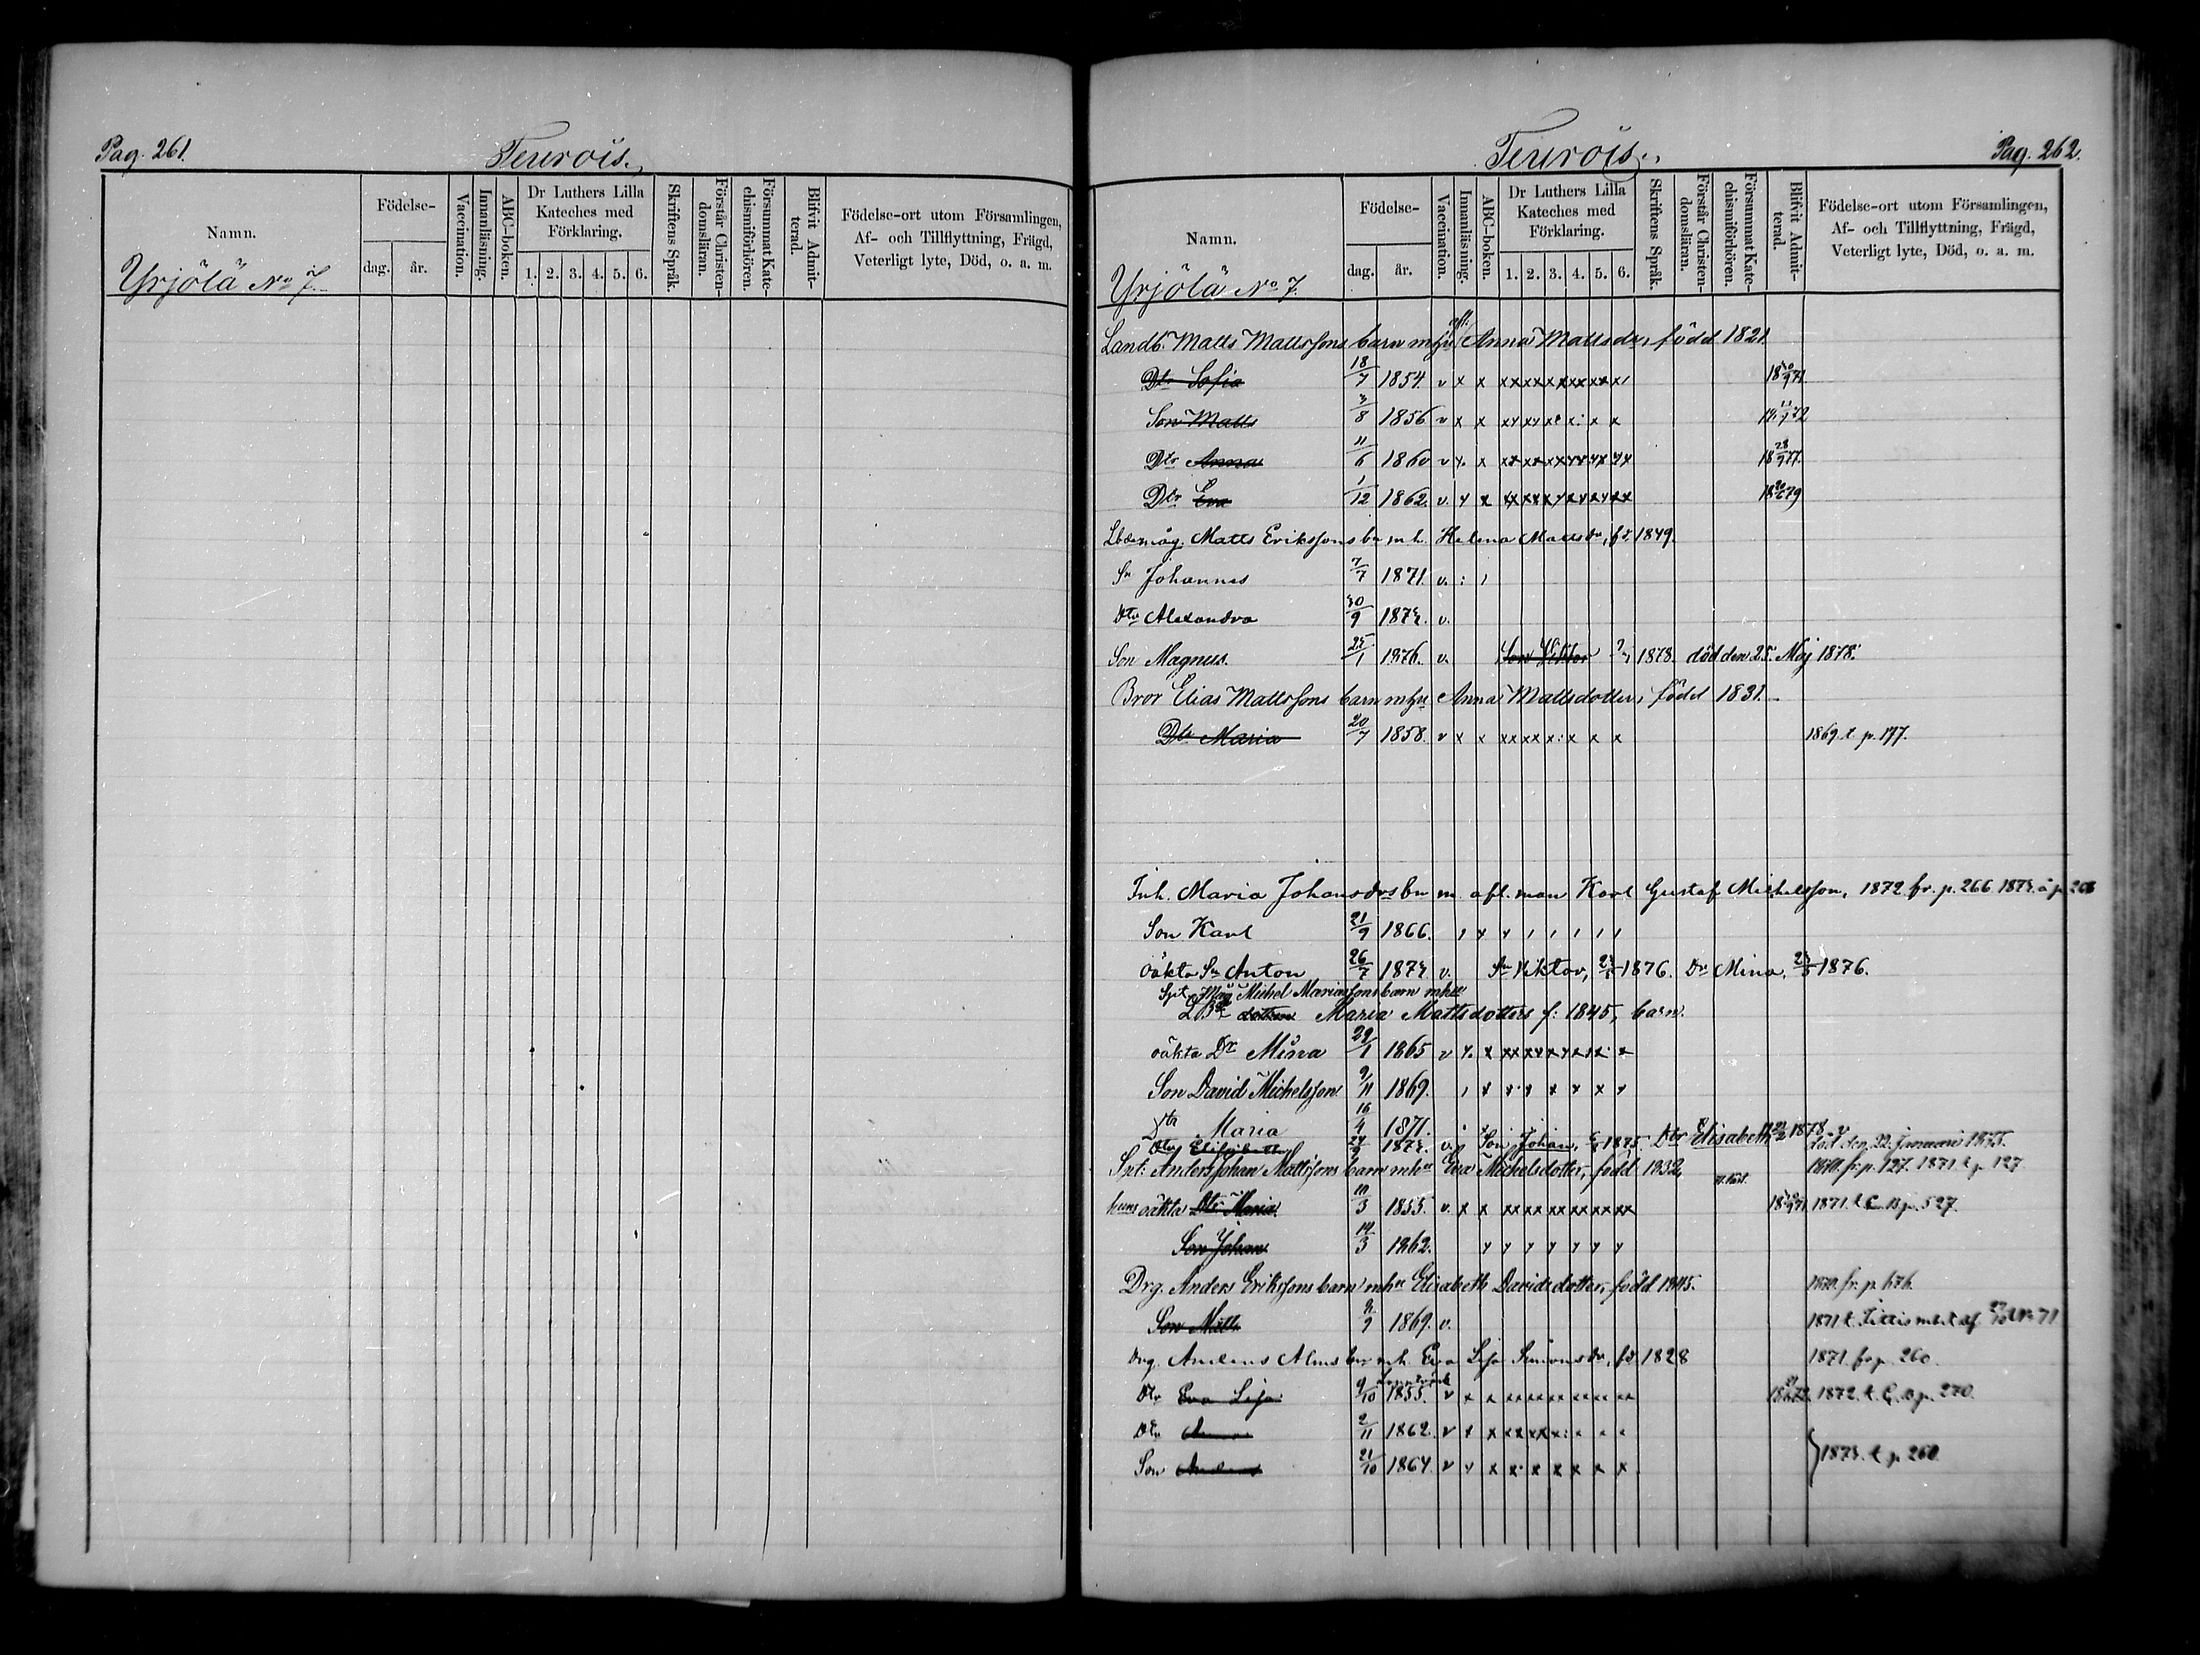 Pag. 261.
Teurois.
Namn.
Födelse-
dag.
år.
Vaccination.
Innanläsning.
ABC-boken.
Dr Luthers Lilla
Kateches med
Förklaring.
1. 2. 3. 4. 5. 6.
Skriftens Språk.
Förstår Christen-
domsläran.
Försummat Kate-
chismiförhören.
Blifvit Admit-
terad.
Födelse-ort utom Församlingen,
Af- och Tillflyttning, Frägd,
Veterligt lyte, Död, o. a. m.
Yrjölä No 7.
Teurois.
Pag. 262.
Namn.
Födelse-
dag.
år.
Vaccination.
Innanläsning.
ABC-boken.
Dr Luthers Lilla
Kateches med
Förklaring.
1. 2. 3. 4. 5. 6.
Skriftens Språk.
Förstår Christen-
domsläran.
Försummat Kate-
chismiförhören.
Blifvit Admit-
terad.
Födelse-ort utom Församlingen,
Af- och Tillflyttning, Frägd,
Veterligt lyte, Död, o. a. m.
Yrjölä No 7.
Landb. Matts Mattssons barn m hu Anna Mattsdr, född 1821.
Dtr Sofia 18/7 1854. v x x
Son Matts 3/8 1856 v x x
Dtr Anna 11/6 1860 v x x 18 28/9 77.
Dtr Eva 1/12 1862. v. x x
Lbdemåg. Matts Erikssons bn m h. Helena Mattsdr, fd 1849.
Sn Johannes 7/7 1871. v.
Dtr Alexandra 30/9 1873. v.
Son Magnus. 25/1 1876. v. Son Viktor 1878. död den 25 Maj 1878.
Bror Elias Mattssons barn m hu Anna Mattsdotter, född 1831.
Dtr Maria 20/7 1858. v x x 1869. t. p. 177.
Inh. Maria Johansdrs bn m. afl. man Karl Gustaf Michelsson, 1872 fr. p. 266. 1873. å p. 268
Son Karl 21/9 1866.
oäkta Sn Anton 26/7 1873. v. Sn Viktor, 1876. Dr Mina, 1876.
Spt Måg Michel Mariassons barn m hu
Maria Mattsdotters f: 1845, barn.
oäkta Dr Mina 29/1 1865 v x x
Son David Michelsson 9/11 1869.
Dtr Maria 16/4 1871.
Dtr Elisabeth 1873. v. Son Johan, 1875. Dtr Elisabeth 1878. v
död den 22 Januari 1875.
Spt: Anders Johan Mattssons barn m hu Eva Michelsdotter, född 1832, 1870. fr. p. 127. 1871 t. p. 127.
hens oäkta Dtr Maria 10/3 1855. v. x x 1871. t C. B. p. 527.
Son Johan 14/3 1862.
Drg. Anders Erikssons barn m hu Elisabeth Davidsdotter, född 1845. 1870. fr. p. 676.
Son Matts 1869. v. 1871 t. Tittis
Drg. Anders Alms bn m h. Eva Lisa Simonsdr, fd 1828 1871. fr p. 260.
Dtr Eva Lisa 9/10 1855. v x x 1872. t. C. B. p. 270.
Dtr Anna 2/11 1862 v x x
Son Anders 21/10 1864. v x x 1873. t. p. 260